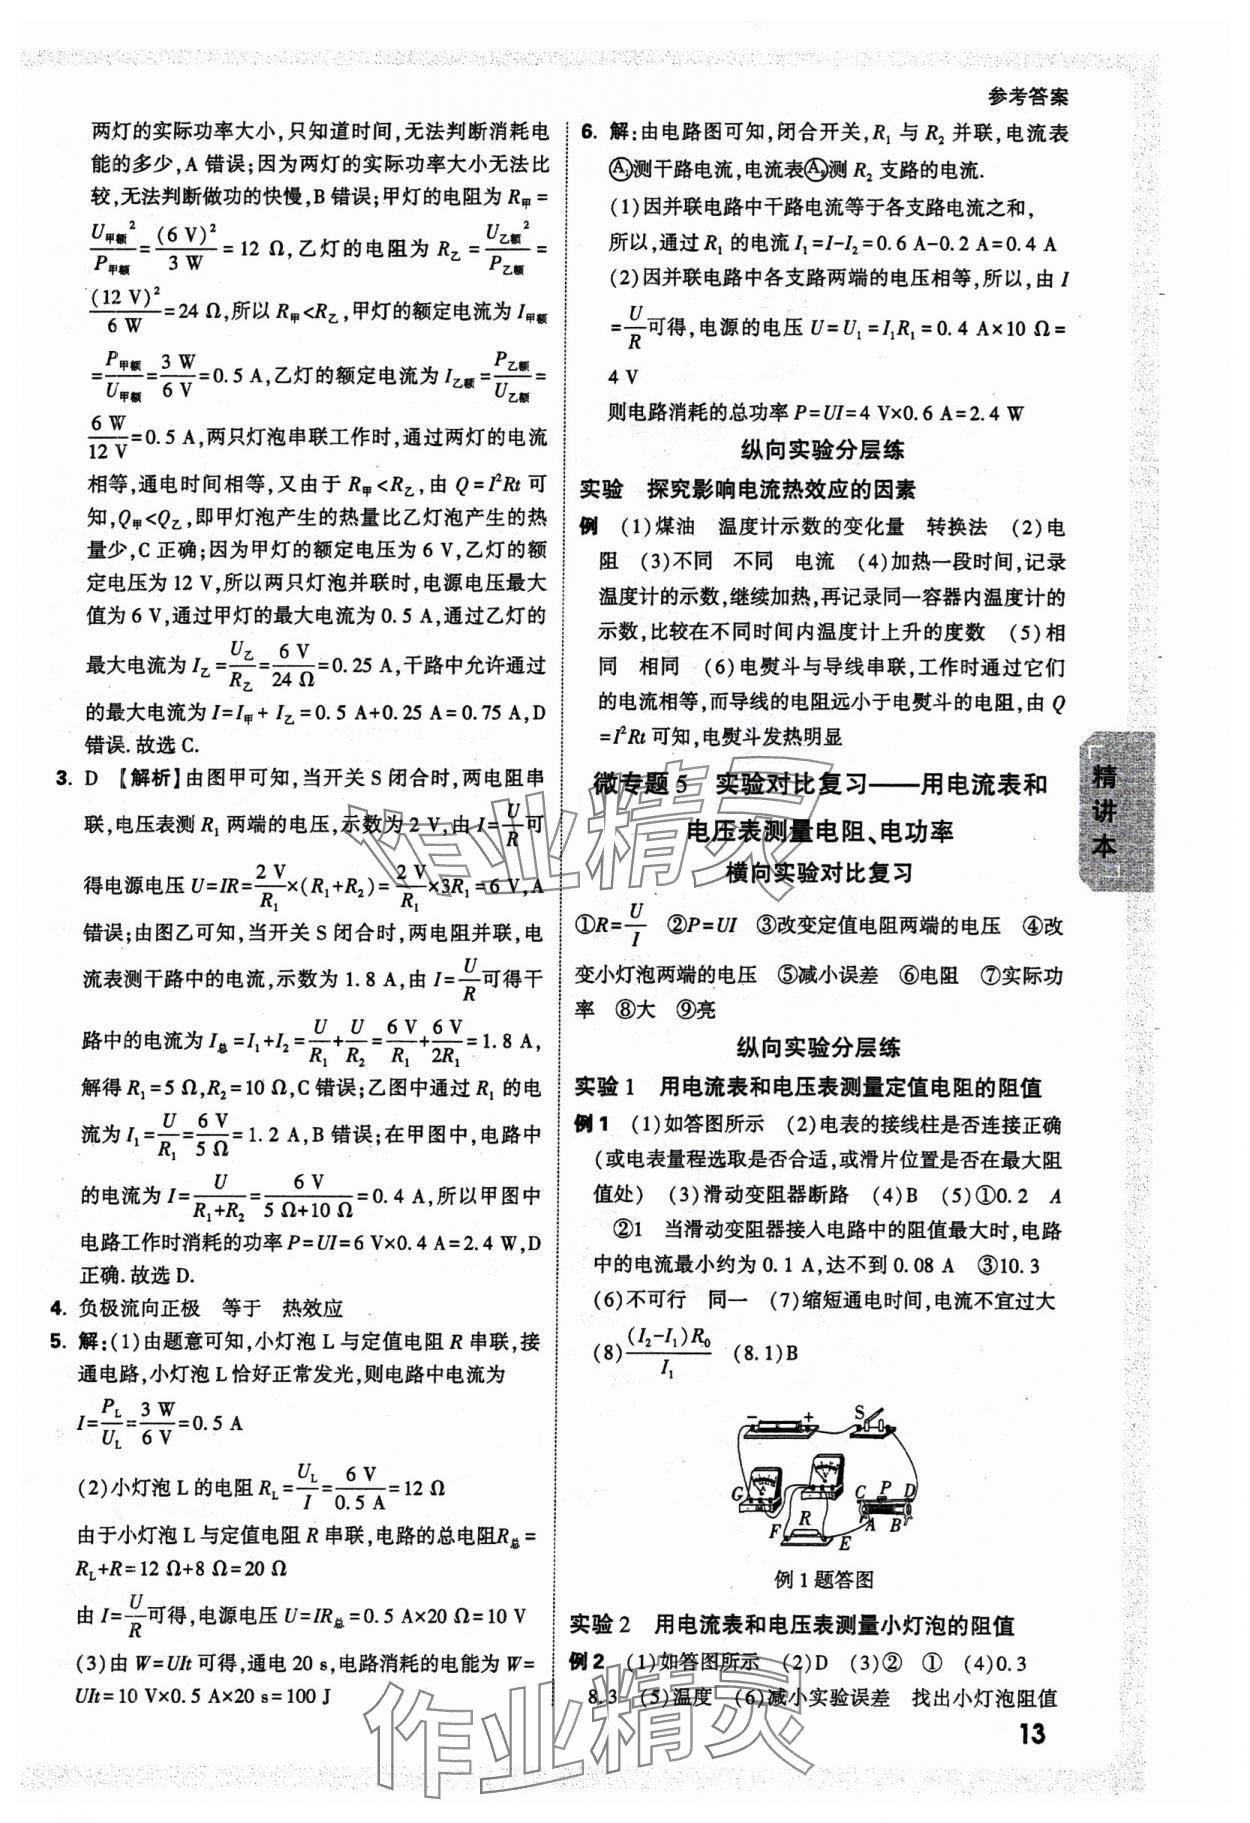 参考答案
两灯的实际功率大小,只知道时间,无法判断消耗电
能的多少,A 错误;因为两灯的实际功率大小无法比
较,无法判断做功的快慢,B 错误;甲灯的电阻为 R甲=
U甲额²/P甲额=(6 V)²/3 W=12 Ω,乙灯的电阻为 R乙=U乙额²/P乙额=
(12 V)²/6 W=24 Ω,所以 R甲<R乙,甲灯的额定电流为 I甲额
=P甲额/U甲额=3 W/6 V=0.5 A,乙灯的额定电流为 I乙额=P乙额/U乙额=
6 W/12 V=0.5 A,两只灯泡串联工作时,通过两灯的电流
相等,通电时间相等,又由于 R甲<R乙,由 Q=I²Rt 可
知,Q甲<Q乙,即甲灯泡产生的热量比乙灯泡产生的热
量少,C 正确;因为甲灯的额定电压为 6 V,乙灯的额
定电压为 12 V,所以两只灯泡并联时,电源电压最大
值为 6 V,通过甲灯的最大电流为 0.5 A,通过乙灯的
最大电流为 I乙=U乙/R乙=6 V/24 Ω=0.25 A,干路中允许通过
的最大电流为 I=I甲+I乙=0.5 A+0.25 A=0.75 A,D
错误.故选 C.
3. D 【解析】由图甲可知,当开关 S 闭合时,两电阻串
联,电压表测 R₁ 两端的电压,示数为 2 V,由 I=U/R可
得电源电压 U=IR=2 V/R₁×(R₁+R₂)=2 V/R₁×3R₁=6 V,A
错误;由图乙可知,当开关 S 闭合时,两电阻并联,电
流表测干路中的电流,示数为 1.8 A,由 I=U/R可得干
路中的电流为 I总=I₁+I₂=U/R₁+U/R₂=6 V/R₁+6 V/2R₁=1.8 A,
解得 R₁=5 Ω,R₂=10 Ω,C 错误;乙图中通过 R₁ 的电
流为 I₁=U/R₁=6 V/5 Ω=1.2 A,B 错误;在甲图中,电路中
的电流为 I=U/(R₁+R₂)=6 V/(5 Ω+10 Ω)=0.4 A,所以甲图中
电路工作时消耗的功率 P=UI=6 V×0.4 A=2.4 W,D
正确.故选 D.
4. 负极流向正极 等于 热效应
5. 解:(1)由题意可知,小灯泡 L 与定值电阻 R 串联,接
通电路,小灯泡 L 恰好正常发光,则电路中电流为
I=P_L/U_L=3 W/6 V=0.5 A
(2)小灯泡 L 的电阻 R_L=U_L/I=6 V/0.5 A=12 Ω
由于小灯泡 L 与定值电阻 R 串联,电路的总电阻R总=
R_L+R=12 Ω+8 Ω=20 Ω
由 I=U/R可得,电源电压 U=IR总=0.5 A×20 Ω=10 V
(3)由 W=UIt 可得,通电 20 s,电路消耗的电能为 W=
UIt=10 V×0.5 A×20 s=100 J
6. 解:由电路图可知,闭合开关,R₁ 与 R₂ 并联,电流表
Ⓐ₁测干路电流,电流表Ⓐ₂测 R₂ 支路的电流.
(1)因并联电路中干路电流等于各支路电流之和,
所以,通过 R₁ 的电流 I₁=I-I₂=0.6 A-0.2 A=0.4 A
(2)因并联电路中各支路两端的电压相等,所以,由 I
=U/R可得,电源的电压 U=U₁=I₁R₁=0.4 A×10 Ω=
4 V
则电路消耗的总功率 P=UI=4 V×0.6 A=2.4 W
纵向实验分层练
实验 探究影响电流热效应的因素
例 (1)煤油 温度计示数的变化量 转换法 (2)电
阻 (3)不同 不同 电流 (4)加热一段时间,记录
温度计的示数,继续加热,再记录同一容器内温度计的
示数,比较在不同时间内温度计上升的度数 (5)相
同 相同 (6)电熨斗与导线串联,工作时通过它们
的电流相等,而导线的电阻远小于电熨斗的电阻,由 Q
=I²Rt 可知,电熨斗发热明显
微专题 5 实验对比复习——用电流表和
电压表测量电阻、电功率
横向实验对比复习
①R=U/I ②P=UI ③改变定值电阻两端的电压 ④改
变小灯泡两端的电压 ⑤减小误差 ⑥电阻 ⑦实际功
率 ⑧大 ⑨亮
纵向实验分层练
实验 1 用电流表和电压表测量定值电阻的阻值
例 1 (1)如答图所示 (2)电表的接线柱是否连接正确
(或电表量程选取是否合适,或滑片位置是否在最大阻
值处) (3)滑动变阻器断路 (4)B (5)①0.2 A
②1 当滑动变阻器接入电路中的阻值最大时,电路
中的电流最小约为 0.1 A,达不到 0.08 A ③10.3
(6)不可行 同一 (7)缩短通电时间,电流不宜过大
(8)(I₂-I₁)R₀/I₁ (8.1)B
- + S
G A V C P D
F R E A B
例 1 题答图
实验 2 用电流表和电压表测量小灯泡的阻值
例 2 (1)如答图所示 (2)D (3)② ① (4)0.3
8.3 (5)温度 (6)减小实验误差 找出小灯泡阻值
精讲本
13
作业精灵
作业精灵